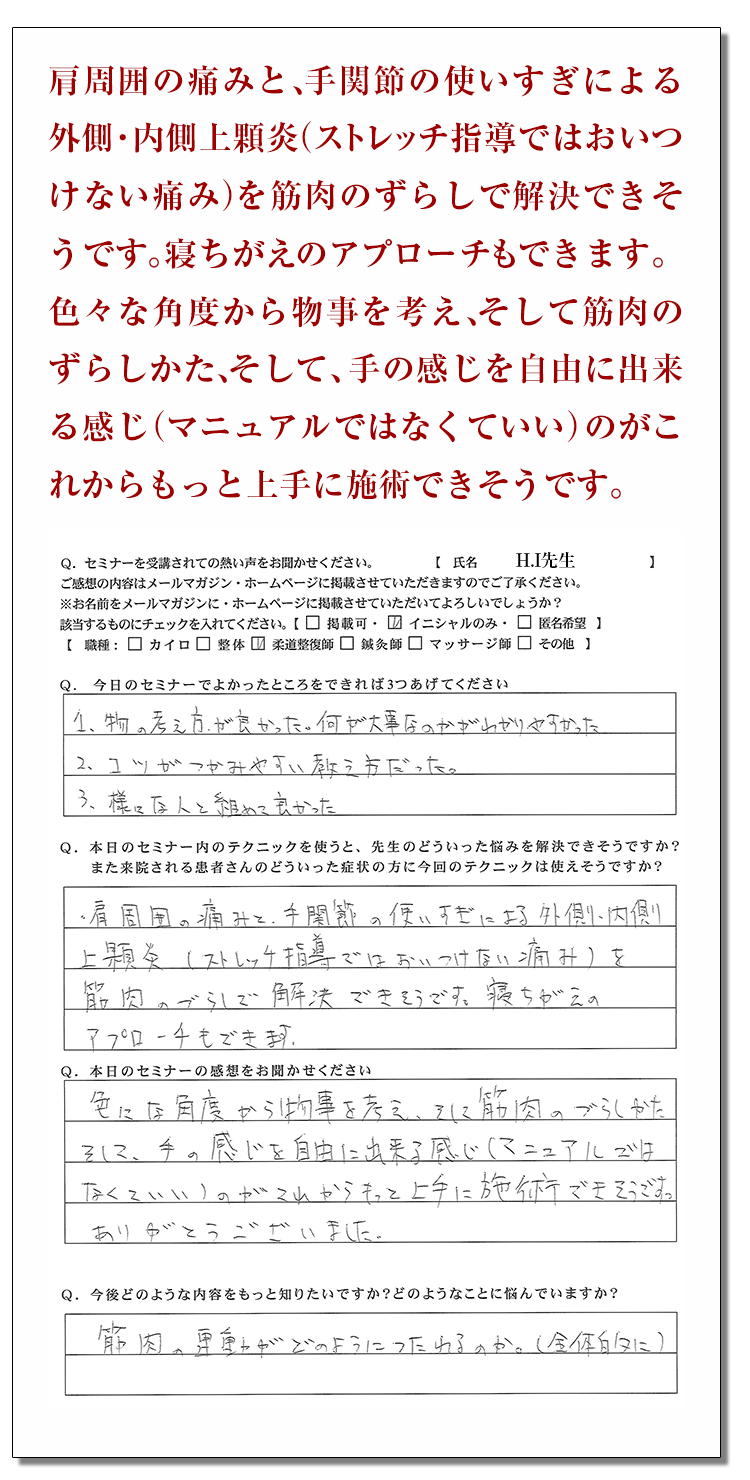 肩周囲の痛みと、手関節の使いすぎによる
外側・内側上顆炎(ストレッチ指導ではおいつ
けない痛み)を筋肉のずらしで解決できそ
うです。寝ちがえのアプローチもできます。
色々な角度から物事を考え、そして筋肉の
ずらしかた、そして、手の感じを自由に出来
る感じ(マニュアルではなくていい)のがこ
れからもっと上手に施術できそうです。
Q．セミナーを受講されての熱い声をお聞かせください。 【 氏名 H.I先生 】
ご感想の内容はメールマガジン・ホームページに掲載させていただきますのでご了承ください。
※お名前をメールマガジンに・ホームページに掲載させていただいてよろしいでしょうか？
該当するものにチェックを入れてください。【 □ 掲載可・ ☑ イニシャルのみ・ □ 匿名希望 】
【 職種： □ カイロ □ 整体 ☑ 柔道整復師 □ 鍼灸師 □ マッサージ師 □ その他 】
Q． 今日のセミナーでよかったところをできれば3つあげてください
1、物の考え方が良かった。何が大事なのかがわかりやすかった
2、コツがつかみやすい教え方だった。
3、様々な人と組めて良かった
Q．本日のセミナー内のテクニックを使うと、先生のどういった悩みを解決できそうですか？
また来院される患者さんのどういった症状の方に今回のテクニックは使えそうですか？
・肩周囲の痛みと、手関節の使いすぎによる外側・内側
上顆炎(ストレッチ指導ではおいつけない痛み)を
筋肉のづらしで解決できそうです。寝ちがえの
アプローチもできます.
Q．本日のセミナーの感想をお聞かせください
色々な角度から物事を考え、そして筋肉のづらしかた
そして、手の感じを自由に出来る感じ(マニュアルでは
なくていい)のがこれからもっと上手に施術できそうです。
ありがとうございました。
Q．今後どのような内容をもっと知りたいですか？どのようなことに悩んでいますか？
筋肉の運動がどのようにつたわるのか。(全体的に)